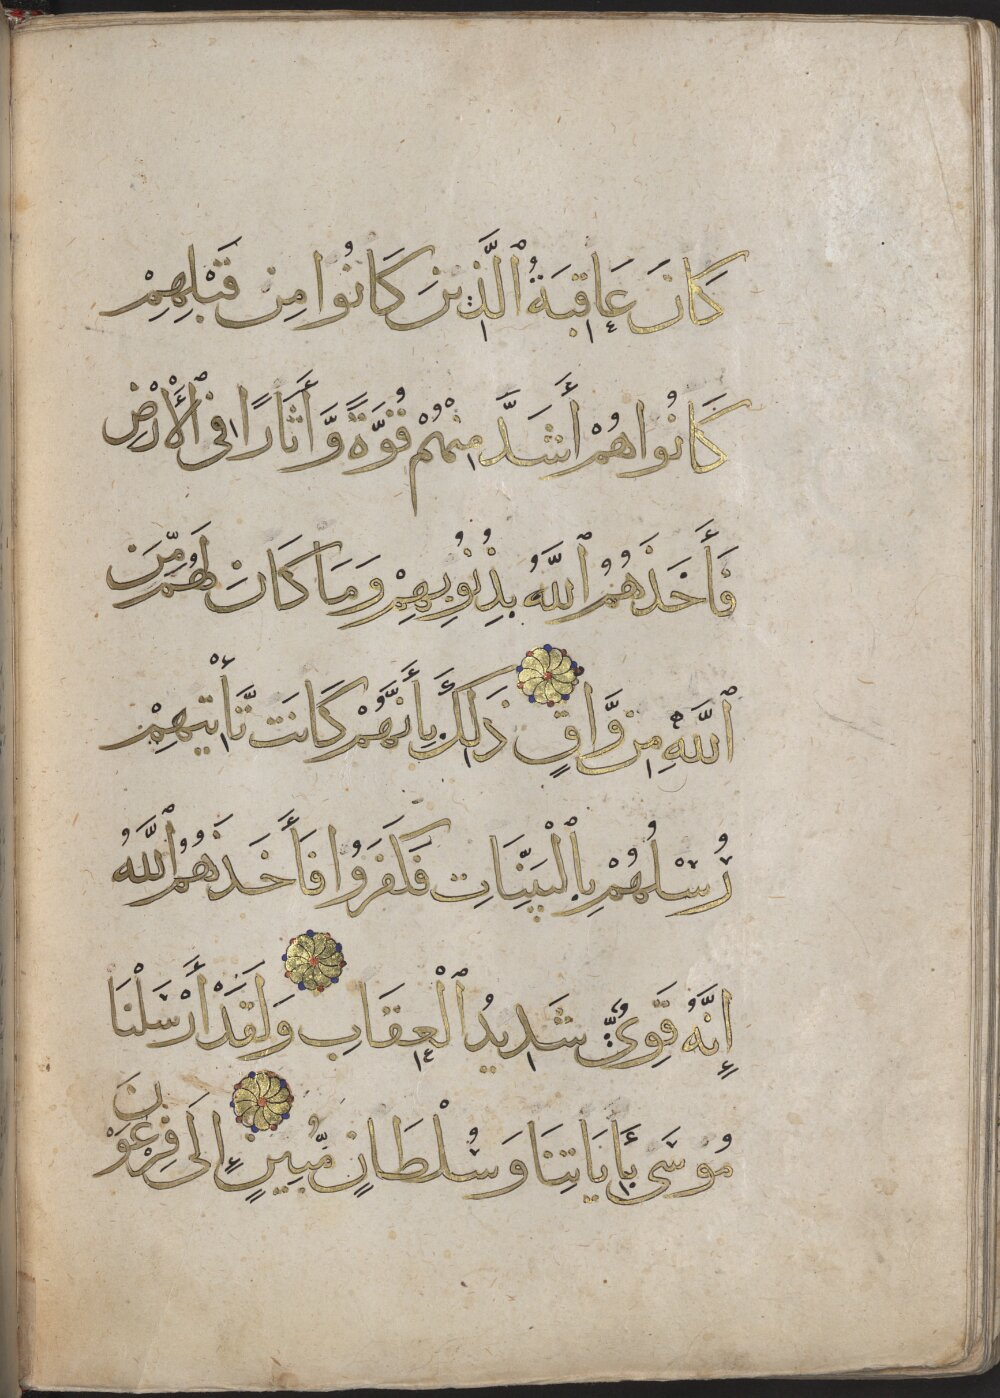 كَانَ عَاقِبَةُ ٱلَّذِينَ كَانُوا مِن قَبْلِهِمْ
كَانُوا هُمْ أَشَدَّ مِنْهُمْ قُوَّةً وَّأَثَارًا فِى ٱلْأَرْضِ
فَأَخَذَهُمُ ٱللَّهُ بِذُنُوبِهِمْ وَمَا كَانَ لَهُم مِّنَ
ٱللَّهِ مِن وَّاقٍ ذَلِكَ بِأَنَّهُمْ كَانَت تَّأْتِيهِمْ
رُسُلُهُمْ بِٱلْبَيِّنَاتِ فَكَفَرُوا فَأَخَذَهُمُ ٱللَّهُ
إِنَّهُ قَوِىٌّ شَدِيدُ ٱلْعِقَابِ وَلَقَدْ أَرْسَلْنَا
مُوسَى بِأَيَاتِنَا وَسُلْطَانٍ مُّبِينٍ إِلَى فِرْعَوْنَ